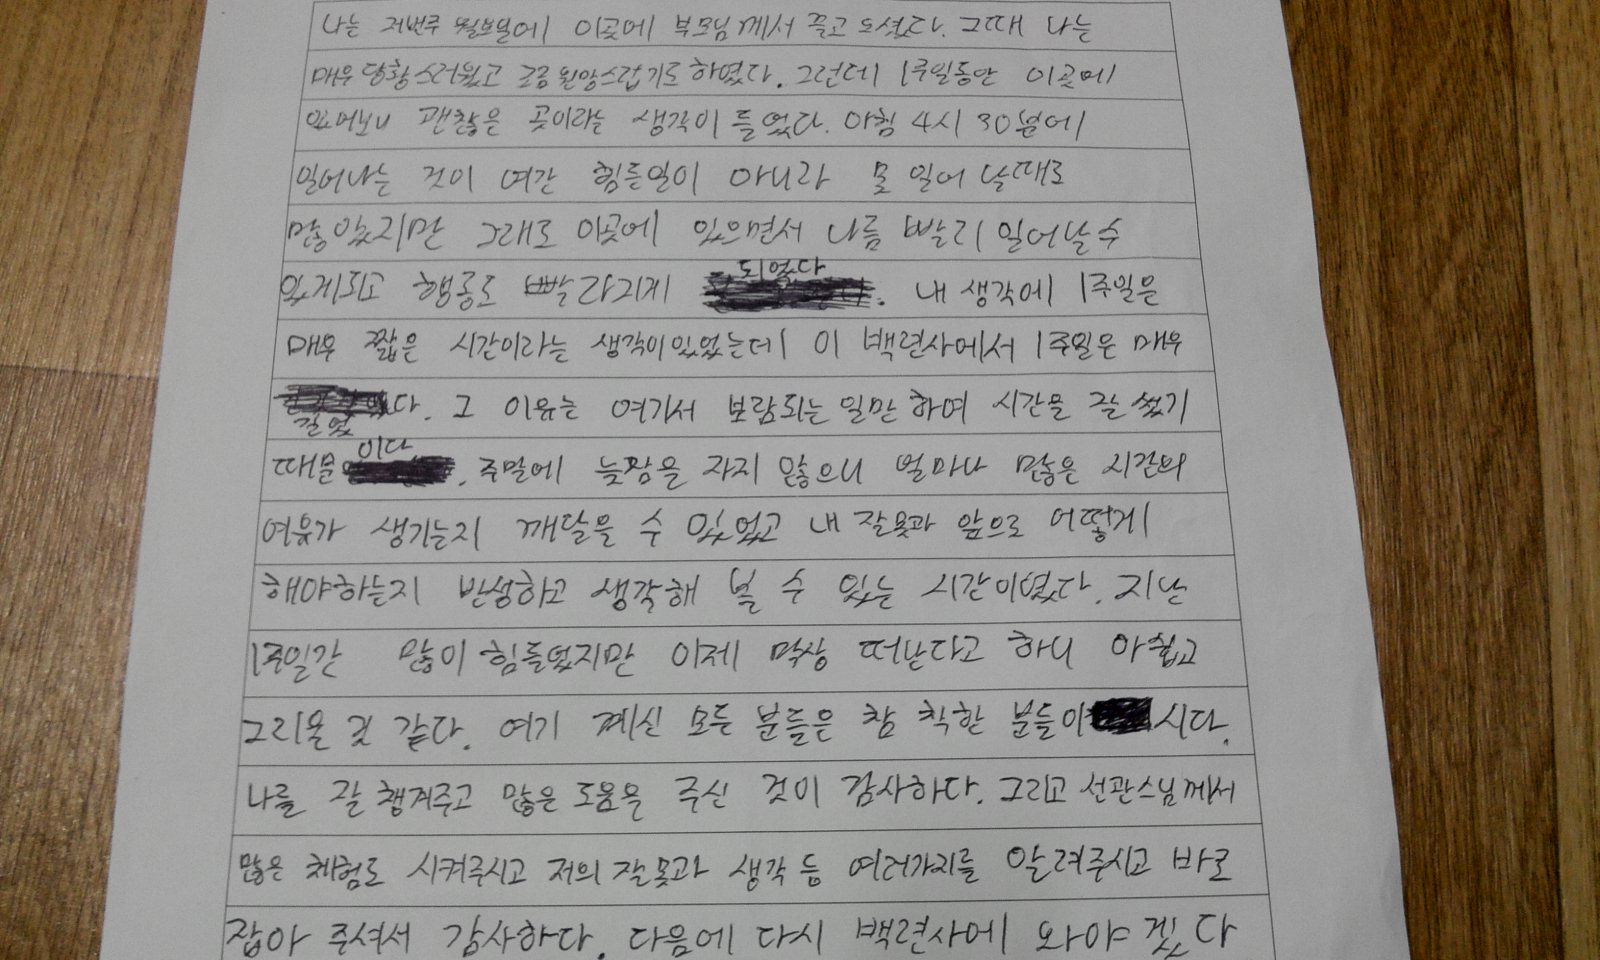 나는 저번주 월요일에 이곳에 부모님께서 끌고 오셨다. 그때 나는
매우 당황스러웠고 조금 원망스럽기도 하였다. 그런데 1주일동안 이곳에
있어보니 괜찮은 곳이라는 생각이 들었다. 아침 4시 30분에
일어나는 것이 여간 힘든일이 아니라 못 일어 날때도
많았지만 그래도 이곳에 있으면서 나름 빨리 일어날 수
있게되고 행동도 빨라지게 되었다. 내 생각에 1주일은
매우 짧은 시간이라는 생각이있었는데 이 백련사에서 1주일은 매우
길었다. 그 이유는 여기서 보람되는 일만 하여 시간을 잘 썼기
때문이다. 주말에 늦잠을 자지 않으니 얼마나 많은 시간의
여유가 생기는지 깨달을 수 있었고 내 잘못과 앞으로 어떻게
해야하는지 반성하고 생각해 볼 수 있는 시간이였다. 지난
1주일간 많이 힘들었지만 이제 막상 떠난다고 하니 아쉽고
그리울 것 같다. 여기 계신 모든 분들은 참 착한 분들이시다.
나를 잘 챙겨주고 많은 도움을 주신 것이 감사하다. 그리고 선관스님께서
많은 체험도 시켜주시고 저의 잘못과 생각 등 여러가지를 알려주시고 바로
잡아 주셔서 감사하다. 다음에 다시 백련사에 와야겠다